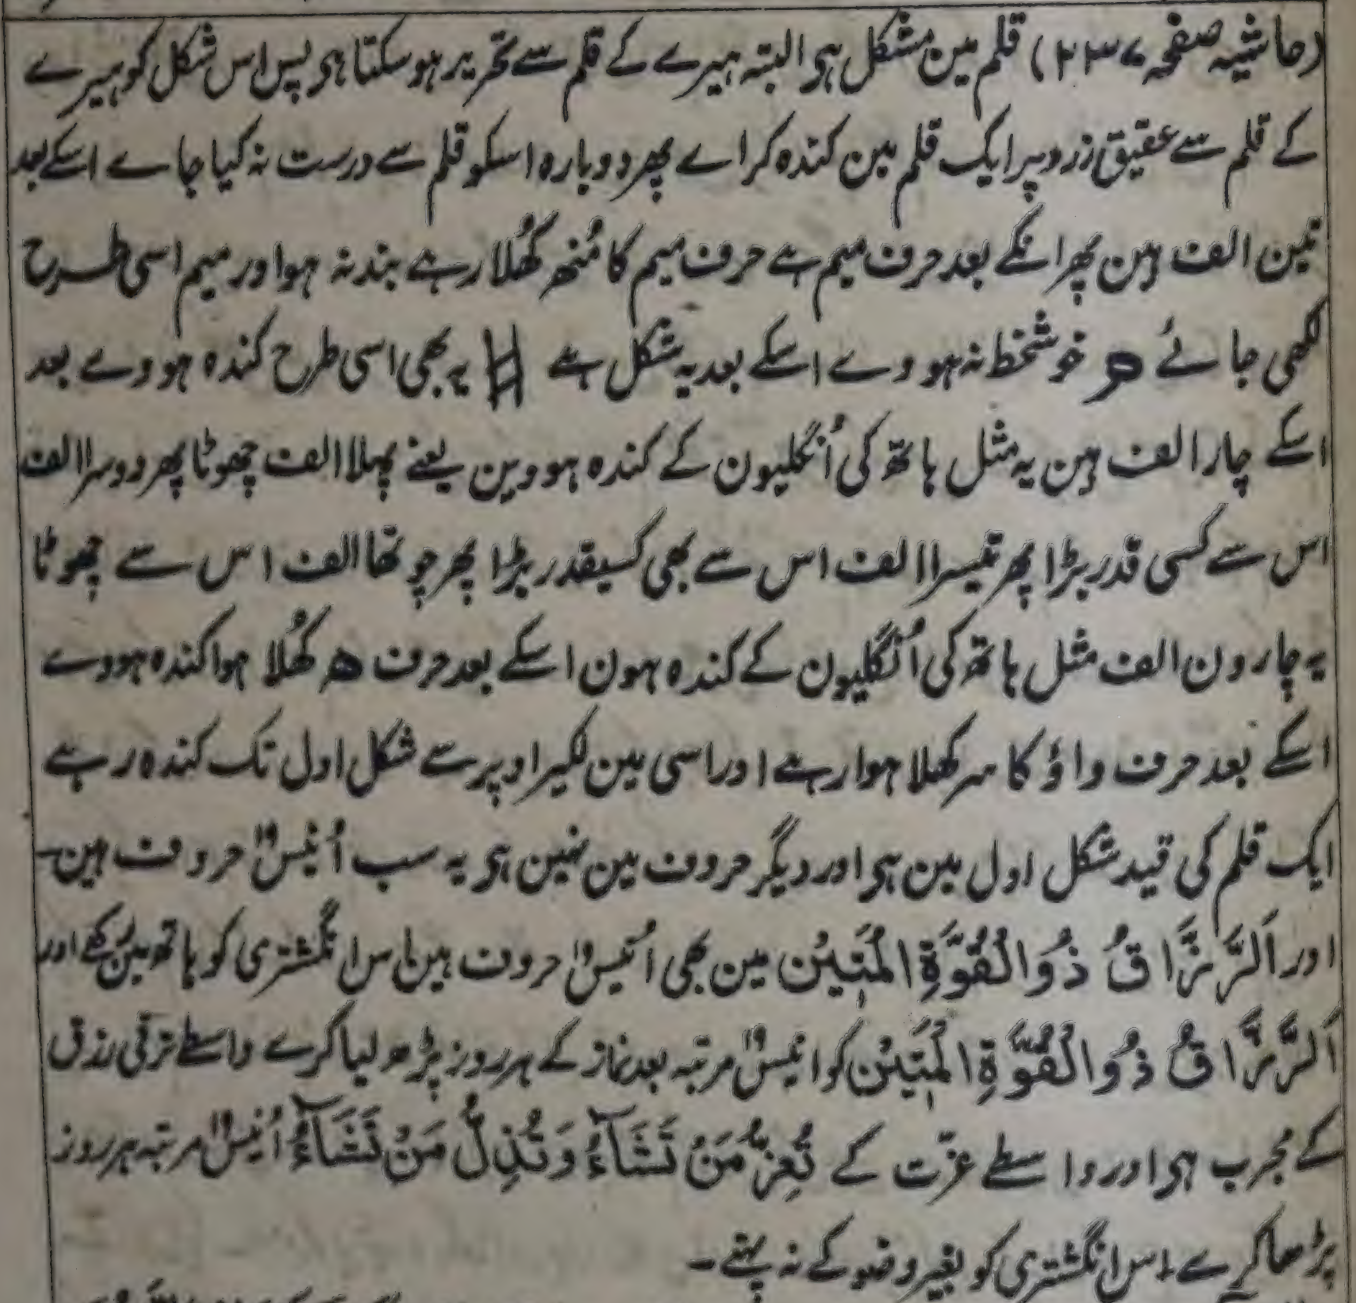 (حاشیہ صفحہ ۲۳۷) قلم مین مشکل ہی البتہ ہیرے کے قلم سے تحریر ہوسکتا ہی پس اس شکل کو ہیرے
کے قلم سے عقیق زرد پر ایک قلم مین کندہ کراے پھر دوبارہ اسکو قلم سے درست نہ کیا جاے اسکے بعد
تین الف ہین پھر انکے بعد حرف میم ہے حرف میم کا مُنھ کُھلا رہے بند نہ ہو اور میم اسی طرح
لکھی جائے م خوشخط نہ ہووے اسکے بعد یہ شکل ہے # یہ بھی اسی طرح کندہ ہووے بعد
اسکے چار الف ہین یہ مثل ہاتھ کی اُنگلیون کے کندہ ہووین یعنے پہلا الف چھوٹا پھر دوسرا الف
اس سے کسی قدر بڑا پھر تیسرا الف اس سے بھی کسیقدر بڑا پھر چوتھا الف اس سے چھوٹا
یہ چارون الف مثل ہاتھ کی اُنگلیون کے کندہ ہون اسکے بعد حرف ھ کُھلا ہوا کندہ ہووے
اسکے بعد حرف واؤ کا سر کھلا ہوا رہے اور اسی مین لکیر اوپر سے شکل اول تک کندہ رہے
ایک قلم کی قید شکل اول مین ہی اور دیگر حروف مین نہین ہی یہ سب اُنیس۱۹ حروف ہین۔
اور اَلرَّزَّاقُ ذُوالْقُوَّةِ الْمَتِیْن مین بھی اُنیس۱۹ حروف ہین اس انگشتری کو ہاتھ مین رکھے اور
اَلرَّزَّاقُ ذُوالْقُوَّةِ الْمَتِیْن کو انیس۱۹ مرتبہ بعد نماز کے ہر روز پڑھ لیا کرے واسطے ترقی رزق
کے مجرب ہی اور واسطے عزّت کے تُعِزُّ مَنْ تَشَآءُ وَتُذِلُّ مَنْ تَشَآءُ اُنیس۱۹ مرتبہ ہر روز
پڑھا کرے اس انگشتری کو بغیر وضو کے نہ پہنے۔